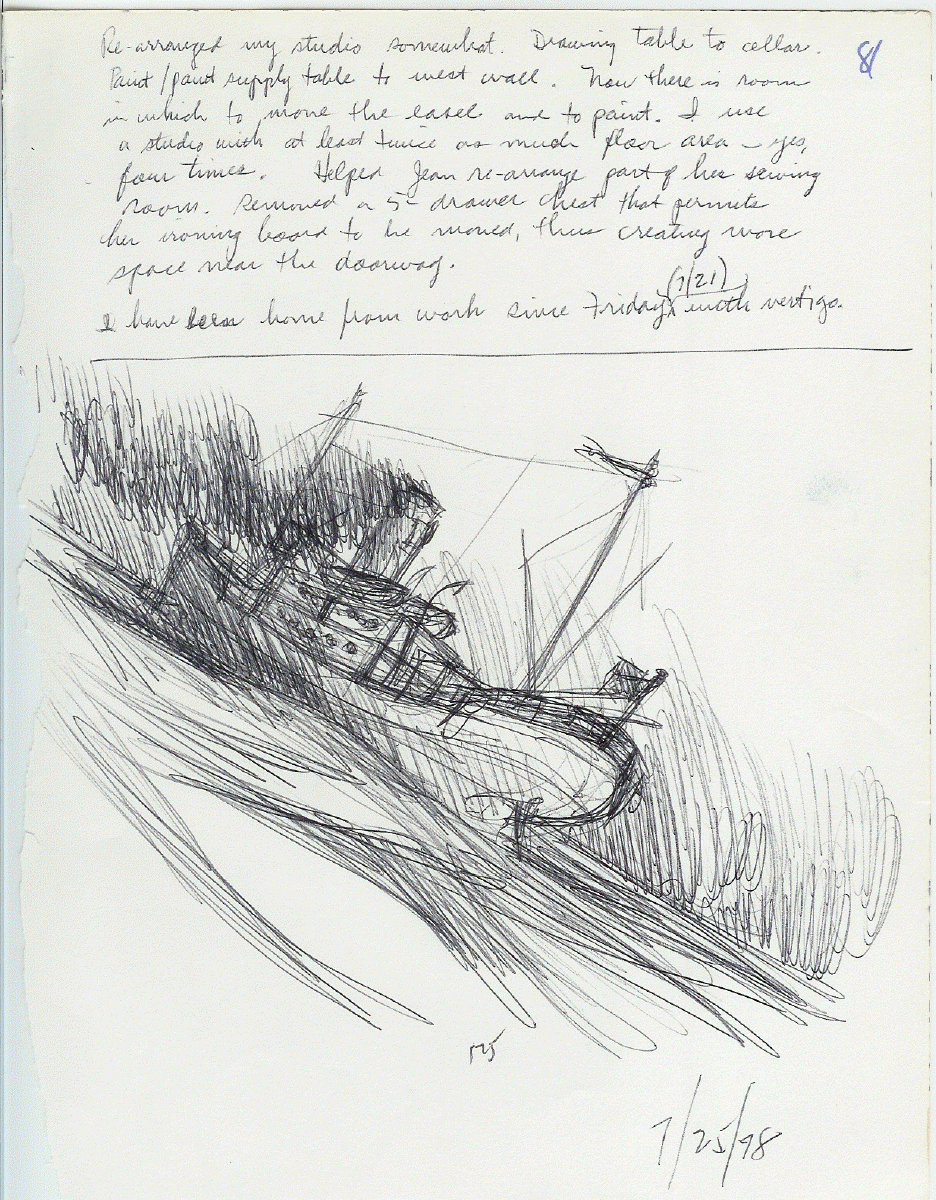 Re-arranged my studio somewhat. Drawing table to cellar.
81
Paint/paint supply table to west wall. Now there is room
in which to move the easel and to paint. I use
a studio with at least twice as much floor area – yes,
four times. Helped Jean re-arrange part of her sewing
room. Removed a 5-drawer chest that permits
her ironing board to be moved, thus creating more
space near the doorway.
(7/21)
I have been home from work since Friday with vertigo.
7/25/98